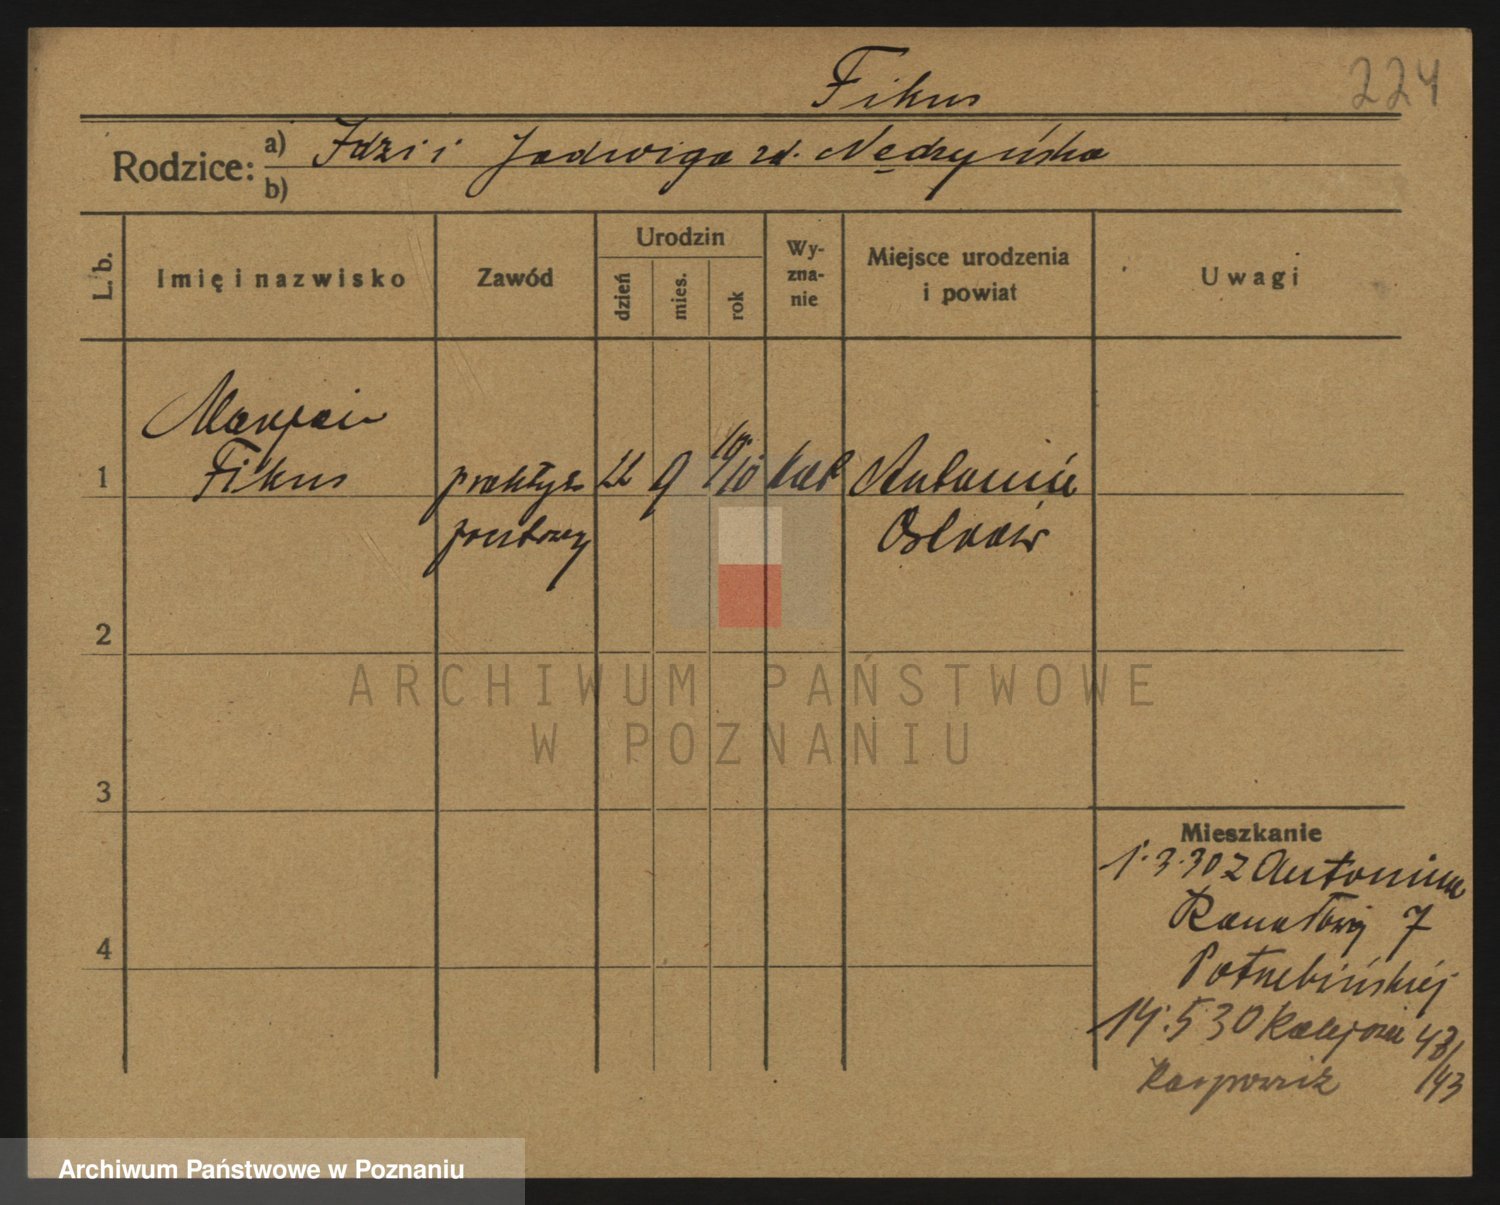 Fikus
224
Rodzice:
a) Idzi i Jadwiga zd. Nędzyńska
b)
L. b.
Imię i nazwisko
Zawód
Urodzin
dzień
mies.
rok
Wy-
zna-
nie
Miejsce urodzenia
i powiat
Uwagi
1
Marjan
Fikus
praktyk.
pocztowy
22
9
19/10
kat
Antonin
Ostrów
2
3
4
Mieszkanie
1.3.30 z Antonina
7
14.5 30
43
Kasprowicz
ARCHIWUM PAŃSTWOWE
W POZNANIU
Archiwum Państwowe w Poznaniu